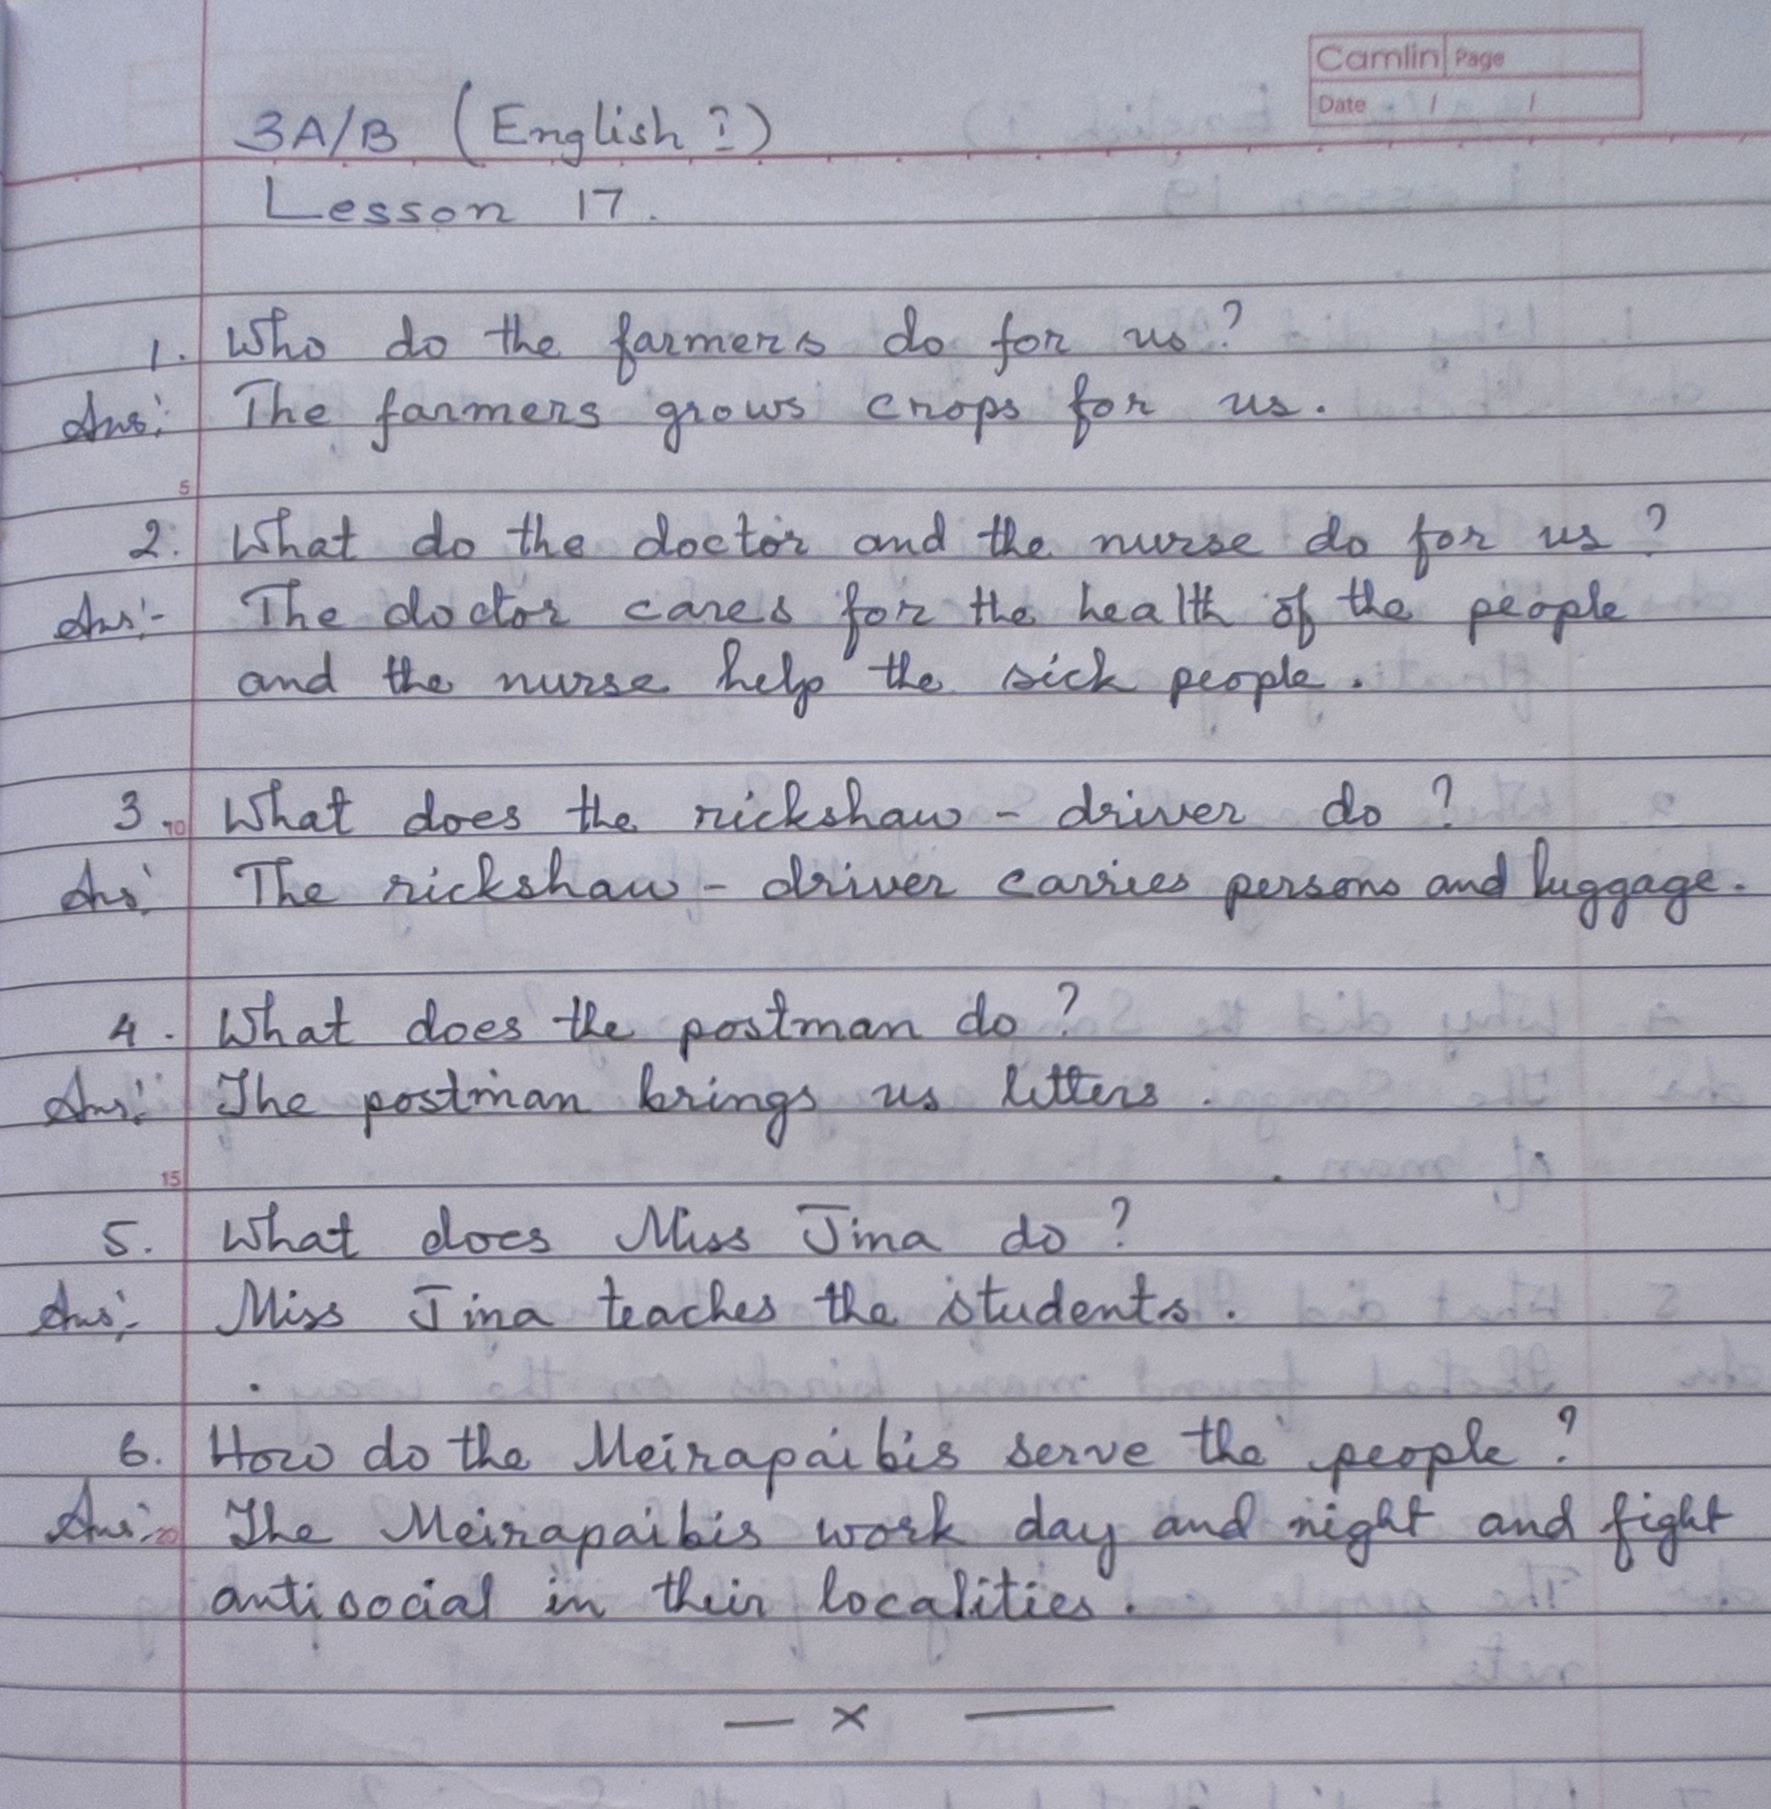 Camlin Page
Date / /
3A/B (English I)
Lesson 17.
1. Who do the farmers do for us?
Ans: The farmers grows crops for us.
5
2. What do the doctor and the nurse do for us?
Ans:- The doctor cares for the health of the people
and the nurse help the sick people.
3. 10 What does the rickshaw - driver do?
Ans: The rickshaw - driver carries persons and luggage.
4. What does the postman do?
Ans: The postman brings us letters.
15
5. What does Miss Jina do?
Ans:- Miss Jina teaches the students.
6. How do the Meirapaibis serve the people?
Ans:- 20 The Meirapaibis work day and night and fight
antisocial in their localities.
— x —